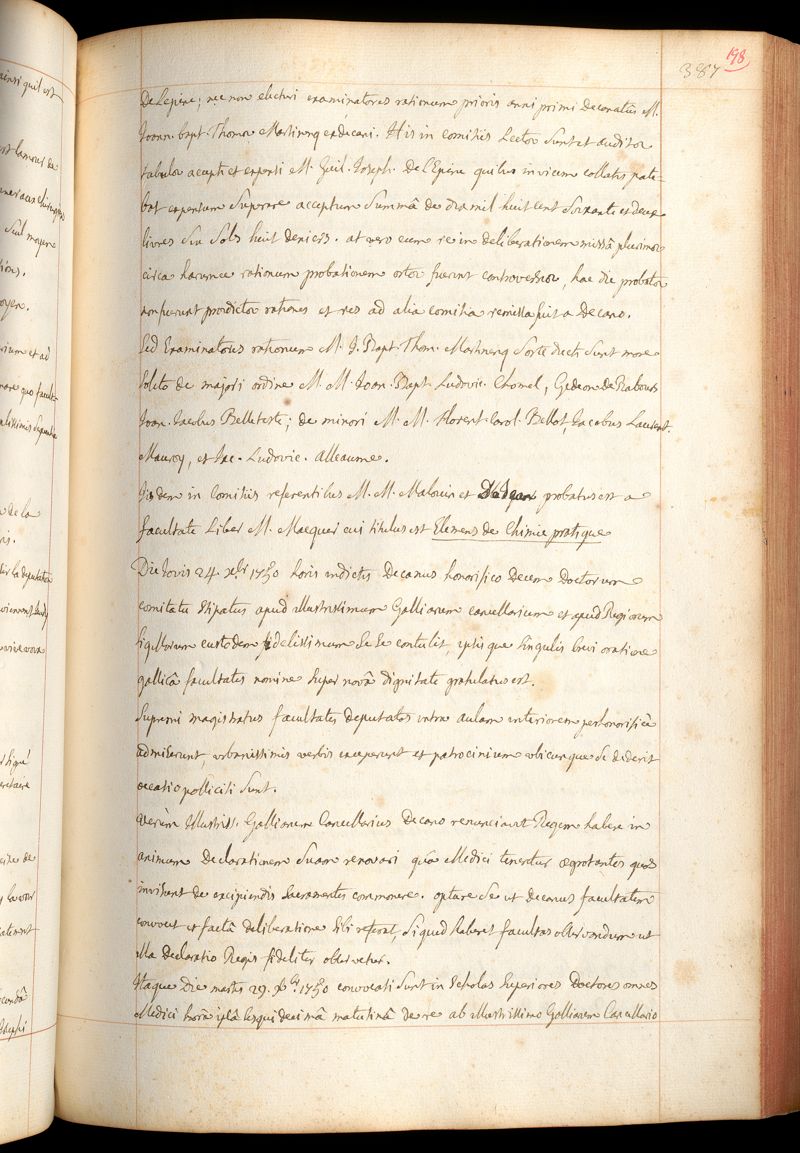 198
387
ainsi quil est
DeLepine; nec non electuri examinatores rationum prioris anni primi Decanatus M.
Joann. bapt. Thomæ Martinenq exdecani. His in comitiis Lectæ Sunt et auditæ
tabulæ accepti et expensi M. Guil. Joseph. De l'Epine quibus invicem collatis pate-
bat expensum Superare acceptum Summâ de dix mil huit cent Soixante et deux
livres Six Sols huit deniers. at vero cum re in deliberationem missâ plurimæ
circa harumce rationum probationem ortæ fuerint controversiæ, hac die probatæ
non fuerunt prædictæ rationes et res ad alia comitia remissa fuit a Decano.
Sed Examinatores rationum M. J. Bapt. Thom. Martinenq Sorte ducti Sunt more
Solito de majori ordine M. M. Joan. Bapt. Ludovic. Chomel, Gedeon De Rabours
Joan. Jacobus Belleteste; de minori M. M. Florent. Carol. Bellot, Jacobus Laurent.
Mauroy, et Jac. Ludovic. Alleaume.
Iisdem in Comitiis referentibus M. M. Malouin et probatus est a
facultate Liber M. Macquer cui titulus est Elemens de Chimie pratique
Die Jovis 24. xbr 1750 horis indictis Decanus honorifico Decem Doctorum
comitatu Stipatus apud illustrissimum Galliarum cancellarium et apud Regiorum
Sigillorum custodem fidelissimum Se Se contulit, ipsis que Singulis brevi oratione
gallicâ facultatis nomine Super novâ dignitate gratulatus est.
Supremi magistratus facultatis deputatos intra aulam interiorem perhonorificè
admiserunt, urbanissimis verbis exceperunt et patrocinium ubicunque Se dederit
occatio polliciti Sunt.
Verùm Illustriss. Galliarum Cancellarius Decano renunciavit Regem habere in
animum Declarationem Suam renovari quâ Medici tenentur ægrotantes quos
invisunt de excipiendis Sacramentis commonere. optare Se ut Decanus facultatem
convocet et factâ deliberatione Sibi referat, Si quid haberet facultas observandum ut
illa Declaratio Regis fideliter observetur.
Itaque Die martis 29. Xbr 1750 convocati Sunt in Scholas Superiores Doctores omnes
Medici horâ ipsâ Sesqui decimâ matutinâ de re ab illustrissimo Galliarum Cancellario